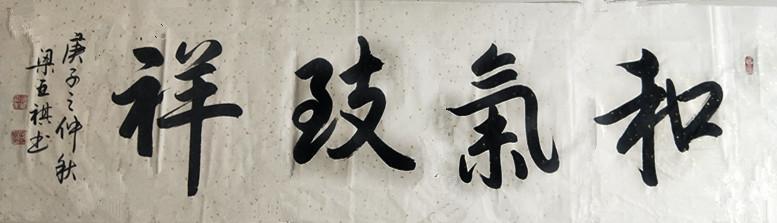 和氣致祥
庚子之仲秋
梁五祺书